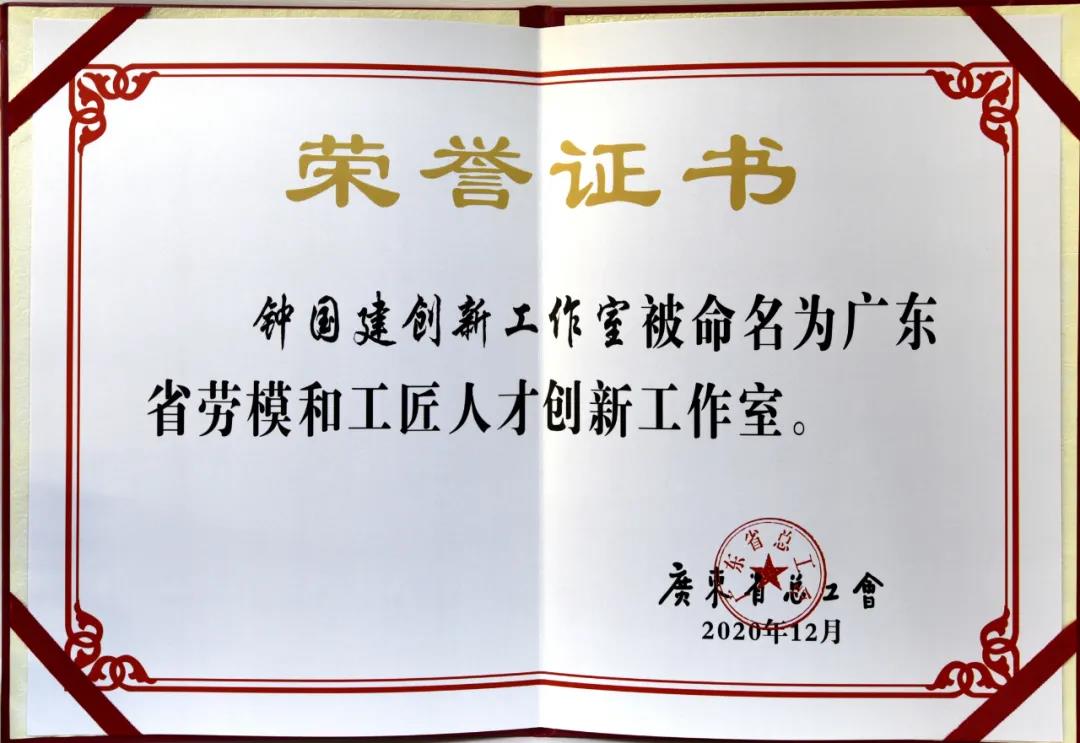 荣誉证书
钟国建创新工作室被命名为广东
省劳模和工匠人才创新工作室。
广东省总工会
廣東省总工會
2020年12月